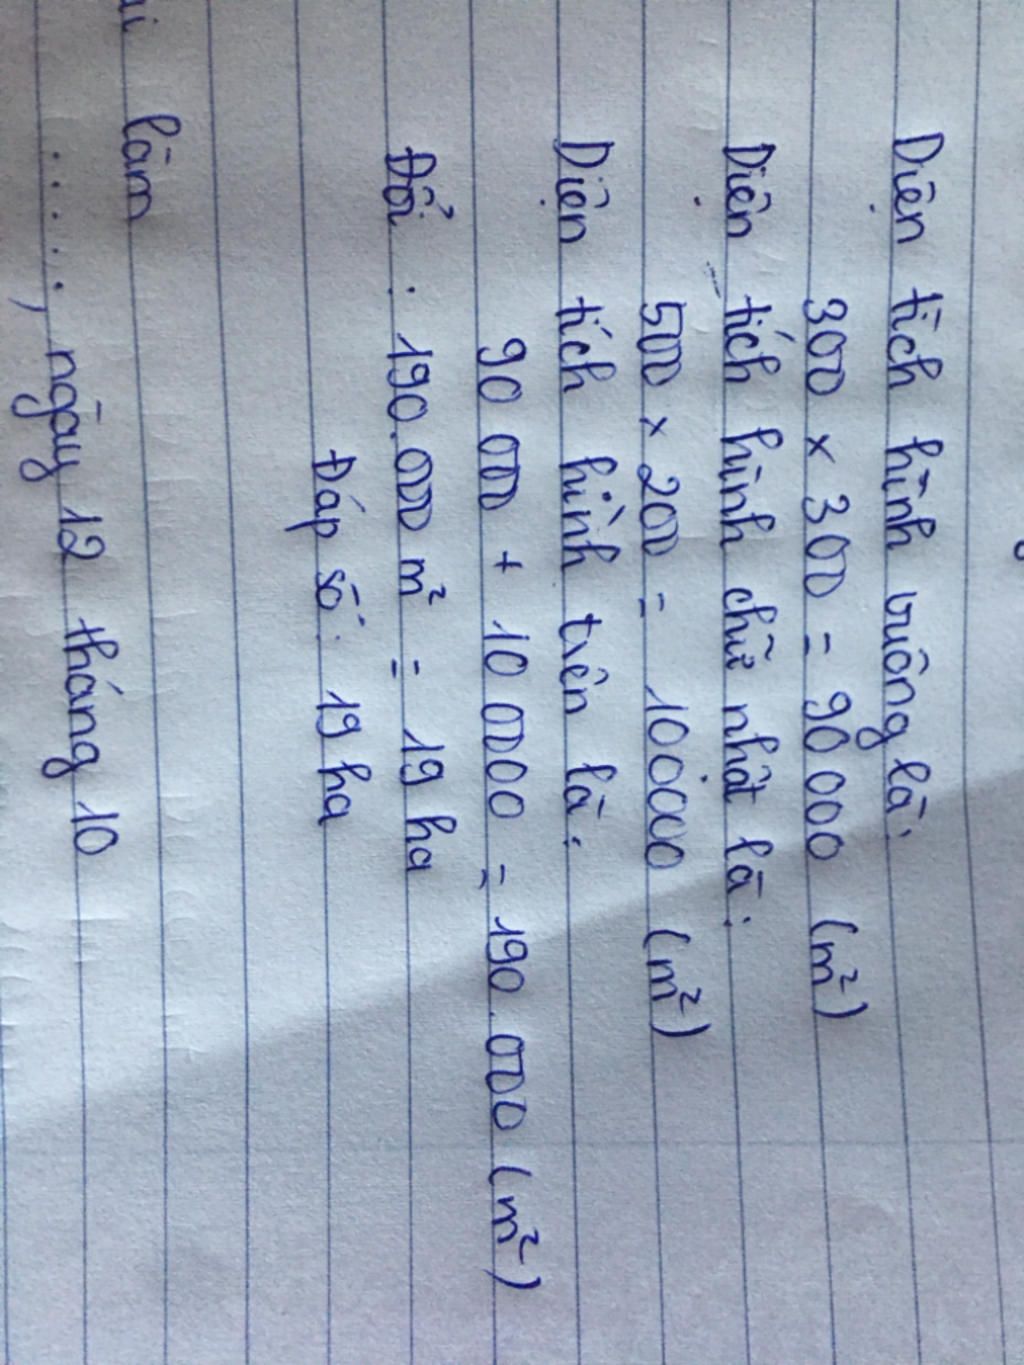 Diện tích hình vuông là:
300 × 300 = 90 000 (m²)
Diện tích hình chữ nhật là:
500 × 200 = 100000 (m²)
Diện tích hình trên là:
90 000 + 10 0000 = 190.000 (m²)
Đổi : 190.000 m² = 19 ha
Đáp số: 19 ha
làm
....., ngày 12 tháng 10